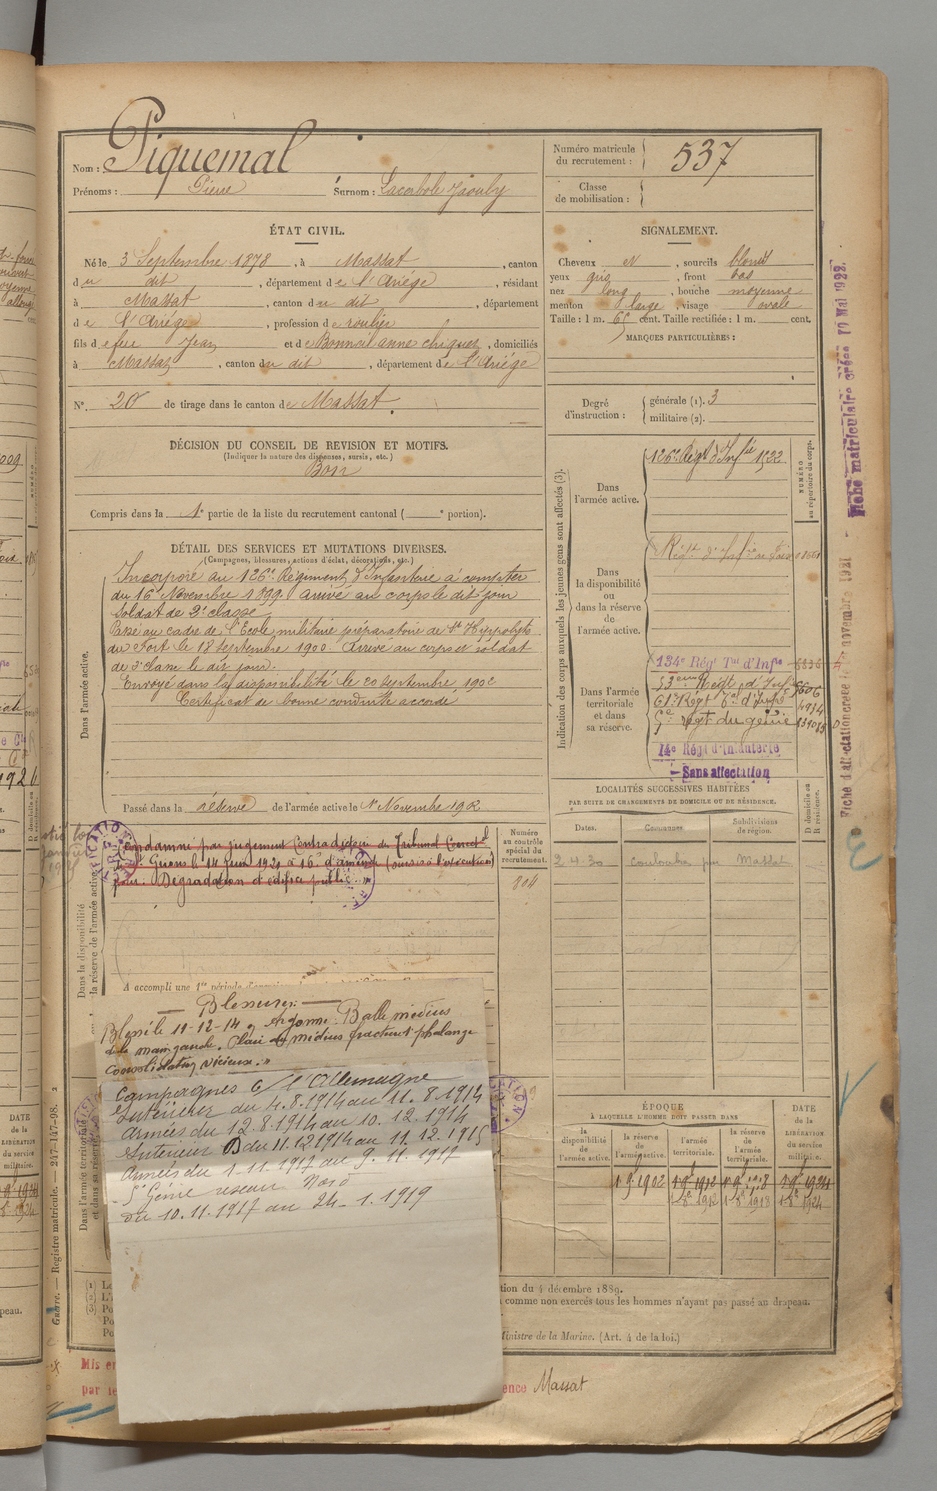 Nom : Piquemal
Prénoms : Pierre Surnom :
Numéro matricule du recrutement : 537
Classe de mobilisation :
ÉTAT CIVIL.
Né le 3 Septembre 1878, à Massat, canton
du dit, département de l'Ariège, résidant
à Massat, canton du dit, département
de l'Ariège, profession de roulier
fils de feu Jean et de Bonnet anne, domiciliés
à Massat, canton du dit, département de l'Ariège
N° 20 de tirage dans le canton de Massat.
SIGNALEMENT.
Cheveux et, sourcils blonds
yeux gris, front bas
nez long, bouche moyenne
menton large, visage ovale
Taille : 1 m. 65 cent. Taille rectifiée : 1 m. cent.
MARQUES PARTICULIÈRES :
Degré d'instruction : générale (1). 3
militaire (2).
DÉCISION DU CONSEIL DE REVISION ET MOTIFS.
(Indiquer la nature des dispenses, sursis, etc.)
Bon
Compris dans la 1e partie de la liste du recrutement cantonal ( e portion).
DÉTAIL DES SERVICES ET MUTATIONS DIVERSES.
(Campagnes, blessures, actions d'éclat, décorations, etc.)
Dans l'armée active.
Incorporé au 126e Régiment d'Infanterie à compter
du 16 Novembre 1899. Arrivé au corps le dit jour
soldat de 2e classe
Passé au cadre de l'École militaire préparatoire de St Hyppolyte
du Fort le 18 septembre 1900. Arrivé au corps et soldat
de 2e classe le dit jour.
Envoyé dans la disponibilité le 20 septembre 1902
Certificat de bonne conduite accordé
Passé dans la réserve de l'armée active le 1er Novembre 1902
Indication des corps auxquels les jeunes gens sont affectés (3).
NUMÉRO au répertoire du corps.
Dans l'armée active.
126e Régt d'Infie 1522
Dans la disponibilité ou dans la réserve de l'armée active.
Régt d'Infie
Dans l'armée territoriale et dans sa réserve.
134e Régt Tal d'Infie
Régt d'Infie
Régt du génie
14e Régt d'Infanterie
Sans affectation
Fiche matriculaire créée 10 Mai 1922.
Fiche d'affectation créée le novembre 1921
Dans la disponibilité
la réserve de l'armée active
Condamné par jugement Contradictoire du Tribunal Correctel
Girons le 14 Juin 1920 à 16f d'amende (sursis à l'exécution)
pour : "Dégradation et édifice public"
Numéro au contrôle spécial du recrutement.
804
A accompli une 1re période
LOCALITÉS SUCCESSIVES HABITÉES
PAR SUITE DE CHANGEMENTS DE DOMICILE OU DE RÉSIDENCE.
Dates. Communes. Subdivisions de région. D domicile ou R résidence.
2.4.30 par Massat
— Blessures: —
Blessé le 11-12-14, Argonne. Balle médius
de la main gauche. Plaie du médius fracture phalange
consolidation vicieuse."
Campagnes C/ l'Allemagne
Intérieur du 4.8.1914 au 11.8.1914
Armées du 12.8.1914 au 10.12.1914
Intérieur D du 11.12.1914 au 11.12.1915
Armées du 1.11.1917 au 9.11.1917
5e Génie réseau Nord
du 10.11.1917 au 24-1.1919
Dans l'armée territoriale
et dans sa réserve
ÉPOQUE
À LAQUELLE L'HOMME DOIT PASSER DANS
la disponibilité de l'armée active.
la réserve de l'armée active.
l'armée territoriale.
la réserve de l'armée territoriale.
DATE de la LIBÉRATION du service militaire.
1.9.1902
tion du 4 décembre 1889.
comme non exercés tous les hommes n'ayant pas passé au drapeau.
Ministre de la Marine. (Art. 4 de la loi.)
Guerre. — Registre matricule. — 247-147-98. 2
Mis en
par le
ence Massat